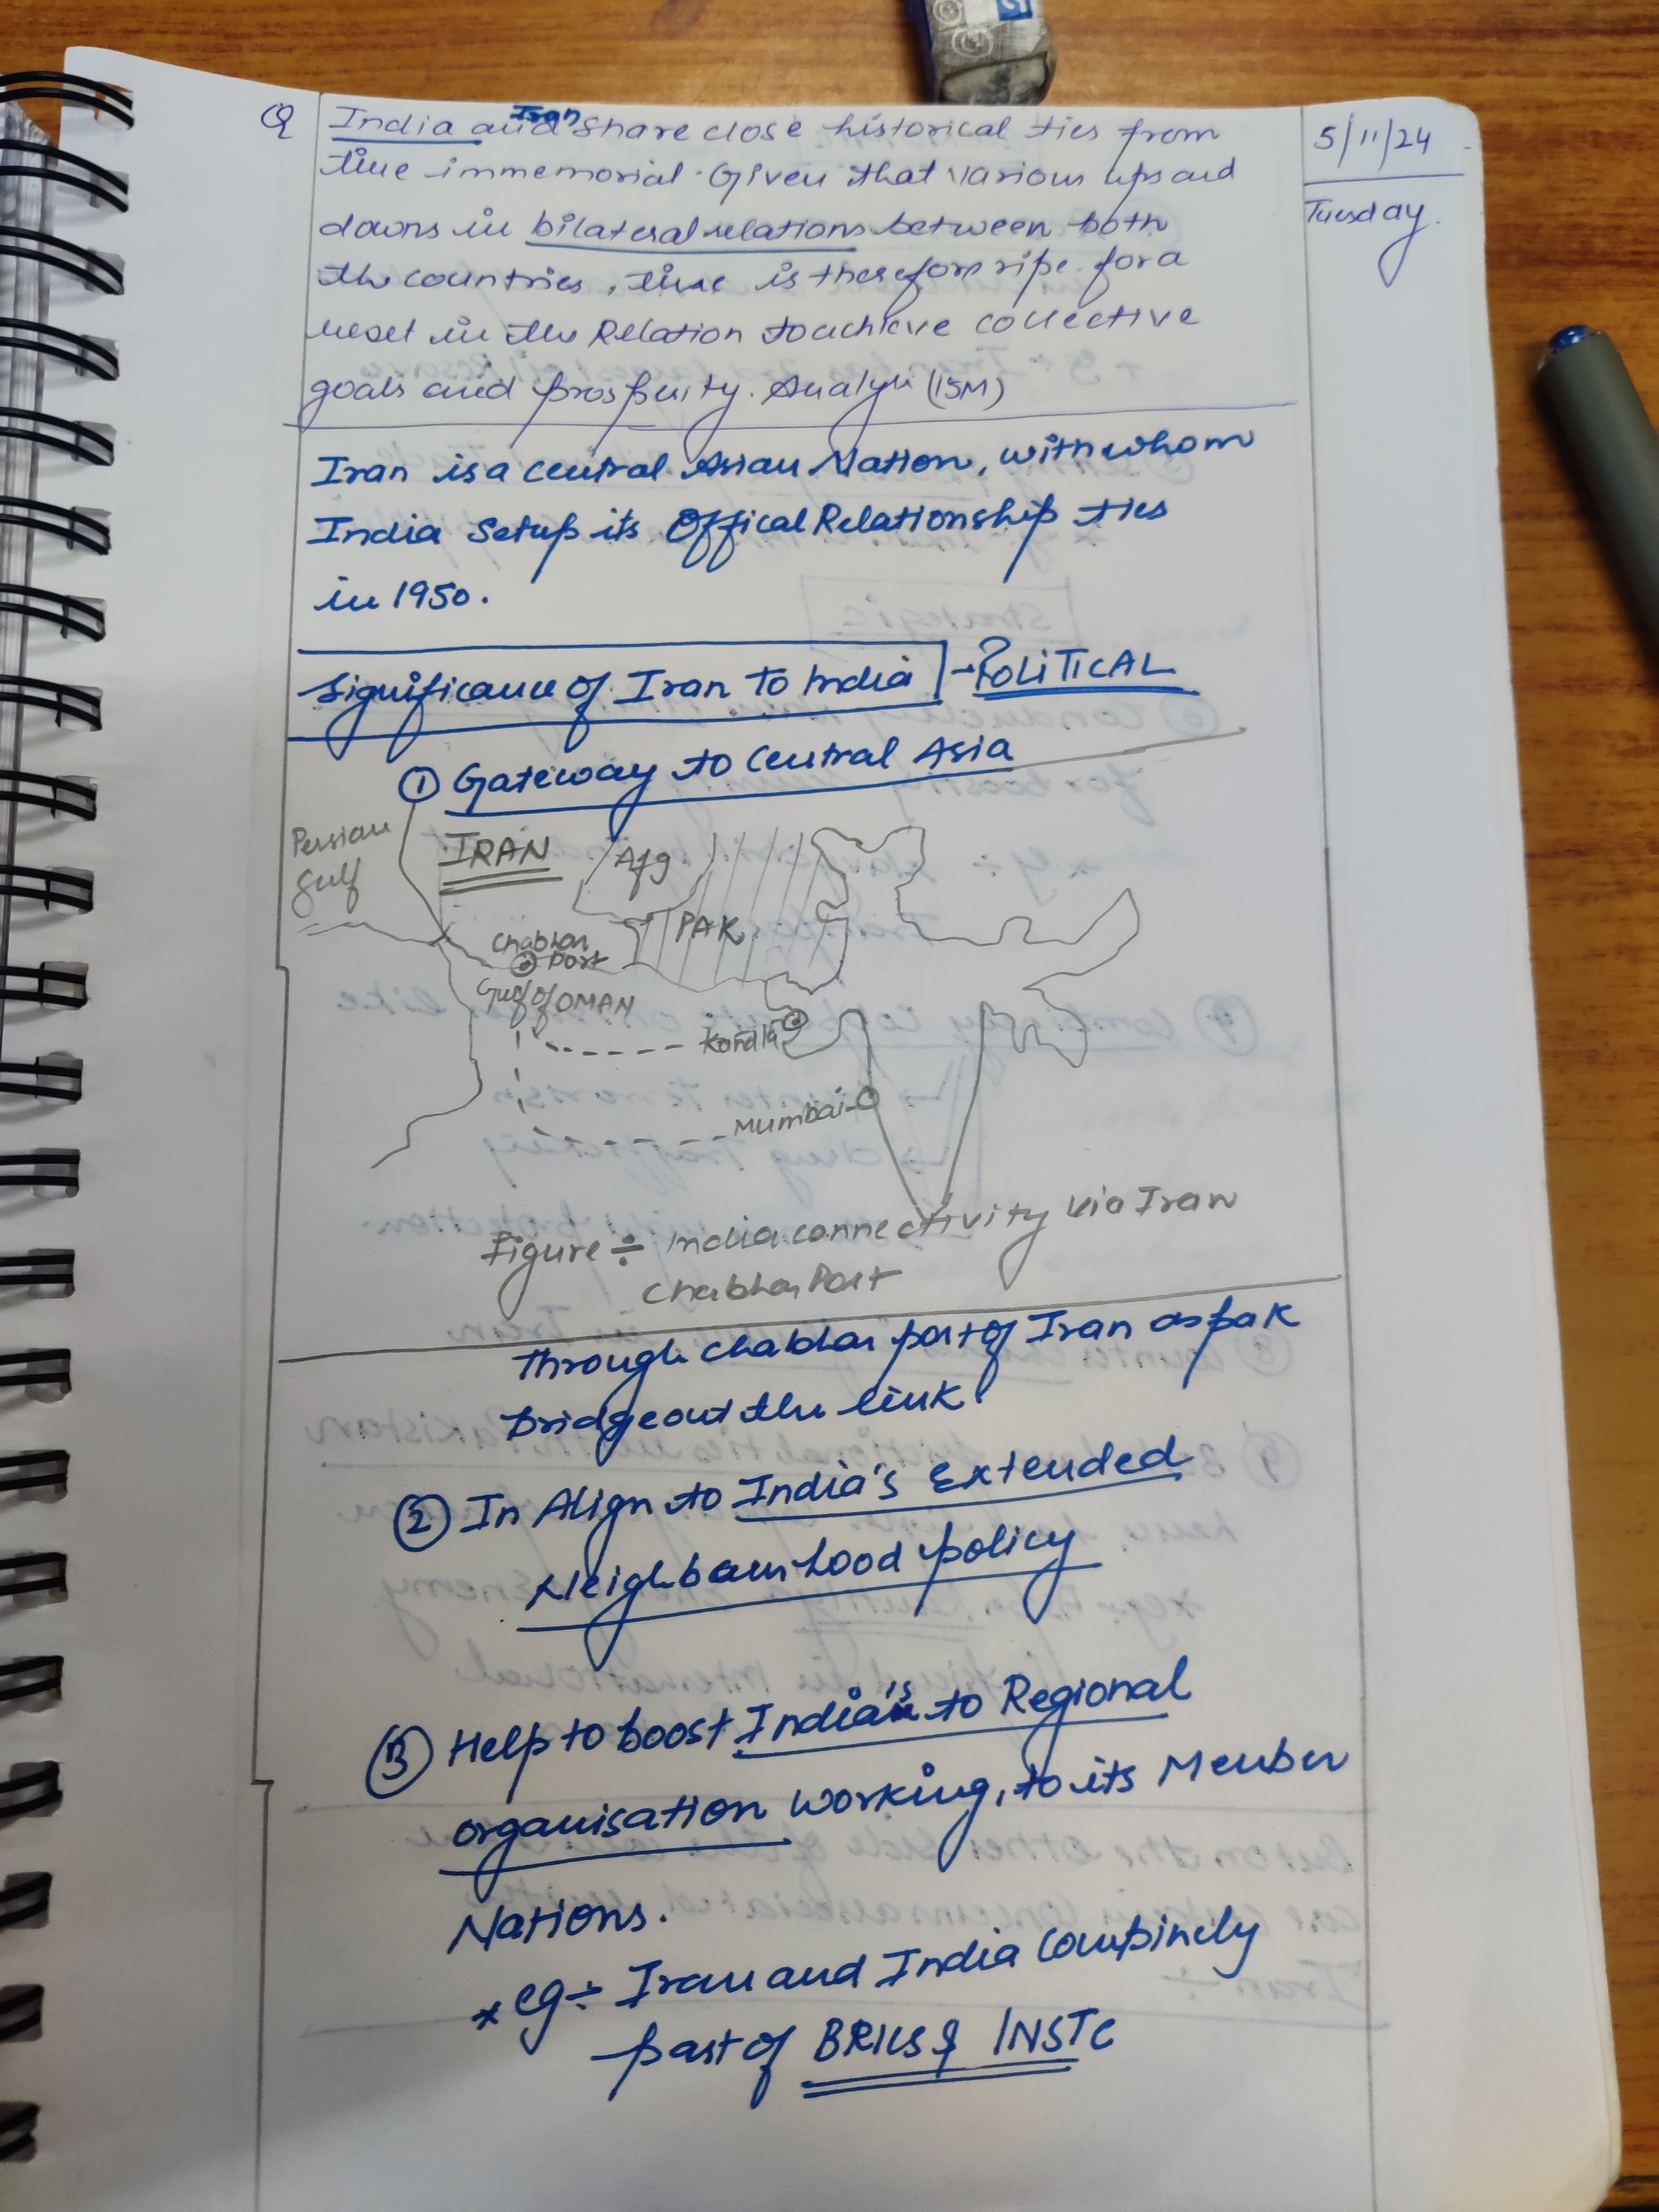 Q
India and Iran share close historical ties from
time immemorial. Given that various ups and
downs in bilateral relations between both
the countries, time is therefore ripe for a
reset in the Relation to achieve collective
goals and prosperity. Analyse (15M)
5/11/24
Tuesday.
Iran is a central Asian Nation, with whom
India Setup its Offical Relationship ties
in 1950.
Significance of Iran to India → POLITICAL
① Gateway to Central Asia
Persian
Gulf
IRAN
Afg
PAK
Chabhar
Port
Gulf of OMAN
Kandla
Mumbai
Figure ÷ India connectivity via Iran
Chabhar Port
Through chabhar port of Iran as pak
bridgeout the link.
② In Align to India's Extended
Neighbourhood policy
③ Help to boost India's to Regional
organisation working, to its Member
Nations.
* eg ÷ Iran and India Combinely
part of BRICS & INSTC